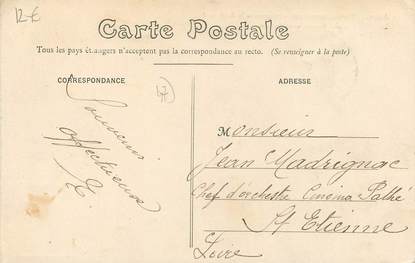 12 €
Carte Postale
Tous les pays étrangers n'acceptent pas la correspondance au recto. (Se renseigner à la poste)
CORRESPONDANCE
Souvenir
affectueux
ADRESSE
Monsieur
Jean Madrignac
Chef d'orchestre Cinéma Pathé
St Etienne
Loire